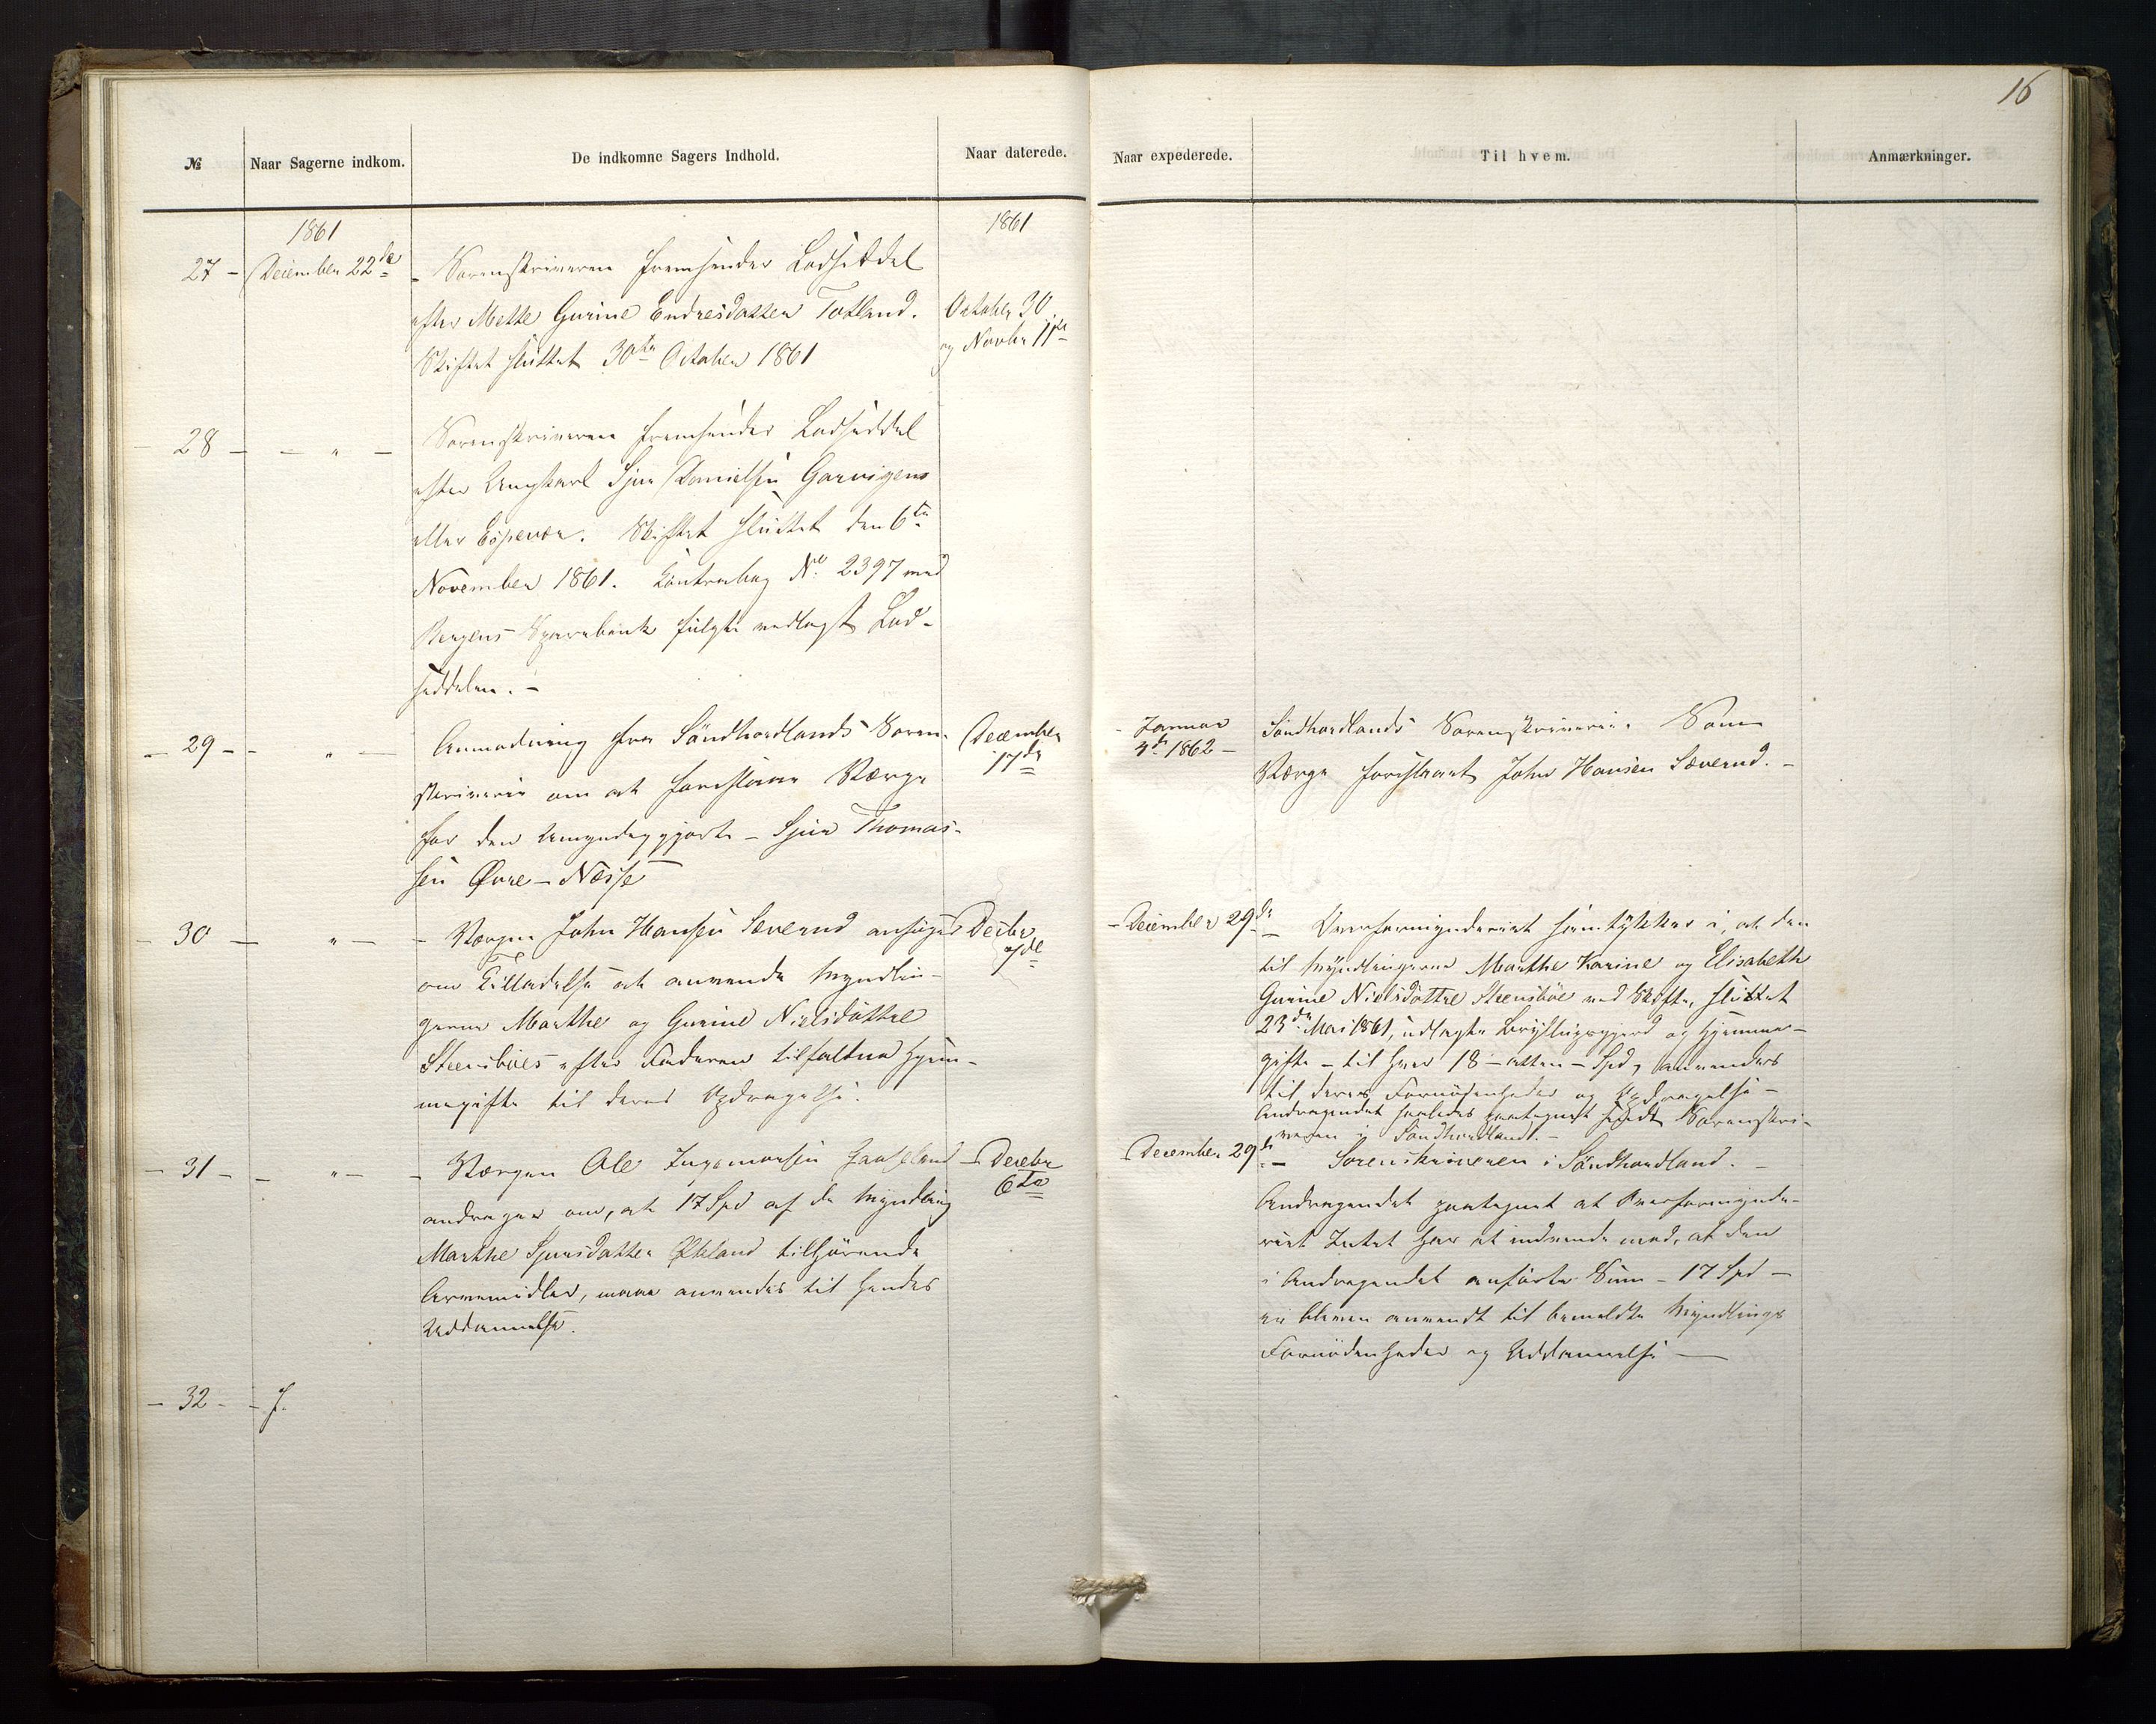 16
№ Naar Sagerne indkom. De indkomne Sagers Indhold. Naar daterede. Naar expederede. Til hvem. Anmærkninger.
1861
1861
27 - December 22de
- Sorenskriveren fremsender Lodseddel
efter Mette Gurine Endresdatter Totland.
Skiftet sluttet 30te October 1861
October 30
og Novbr 11te
28 - - " -
Sorenskriveren fremsender Lodseddel
efter Ungkarl Sjur Danielsen Garvigens
eller Espevær. Skiftet sluttet den 6te
November 1861. Contrabog No 2397 med
Bergens Sparebank fulgte vedlagt Lod-
seddelen. -
- 29 - - " -
Anmodning fra Söndhordlands Soren-
skriveri om at foreslaae Værge
for den Umyndiggjorte - Sjur Thomas-
sen Øvre-Næsse
December
17de
- Januar
4de 1862 -
Söndhordlands Sorenskriveri. Som
Værge foreslaaet John Hansen Sæverud. -
- 30 - " -
- Værgen John Hansen Sæverud ansöger
om Tilladelse at anvende Myndlin-
gerne Marthe og Gurine Nielsdöttre
Steensböes efter Faderen tilfaldne Hjem-
megifte til deres Opdragelse.
Decbr
- December 29de
- Overformynderiet samtykker i, at den
til Myndlingerne Marthe Karine og Elisabeth
Gurine Nielsdöttre Steensböe ved Skifte, sluttet
23de Mai 1861, udlagte Bryllupsgjerd og Hjemme-
gifte - til hver 18 - atten - Spd, anvendes
til deres Fornödenheder og Opdragelse -
Andragendet saaledes paategnet sendt Sorenskri-
veren i Söndhordland. -
- 31 - - " -
- Værgen Ole Ingemorsen
andrager om, at 17 Spd af de Myndling
Marthe Sjursdatter Økland tilhörende
Arvemidler, maae anvendes til hendes
Uddannelse.
- Decebr
6te
December 29de
- Sorenskriveren i Söndhordland. -
Andragendet paategnet at Overformynde-
riet Intet har at indvende mod, at den
i Andragendet anförte Sum - 17 Spd -
bliver anvendt til bemeldte Myndlings
Fornödenheder og Uddannelse -
- 32 - -